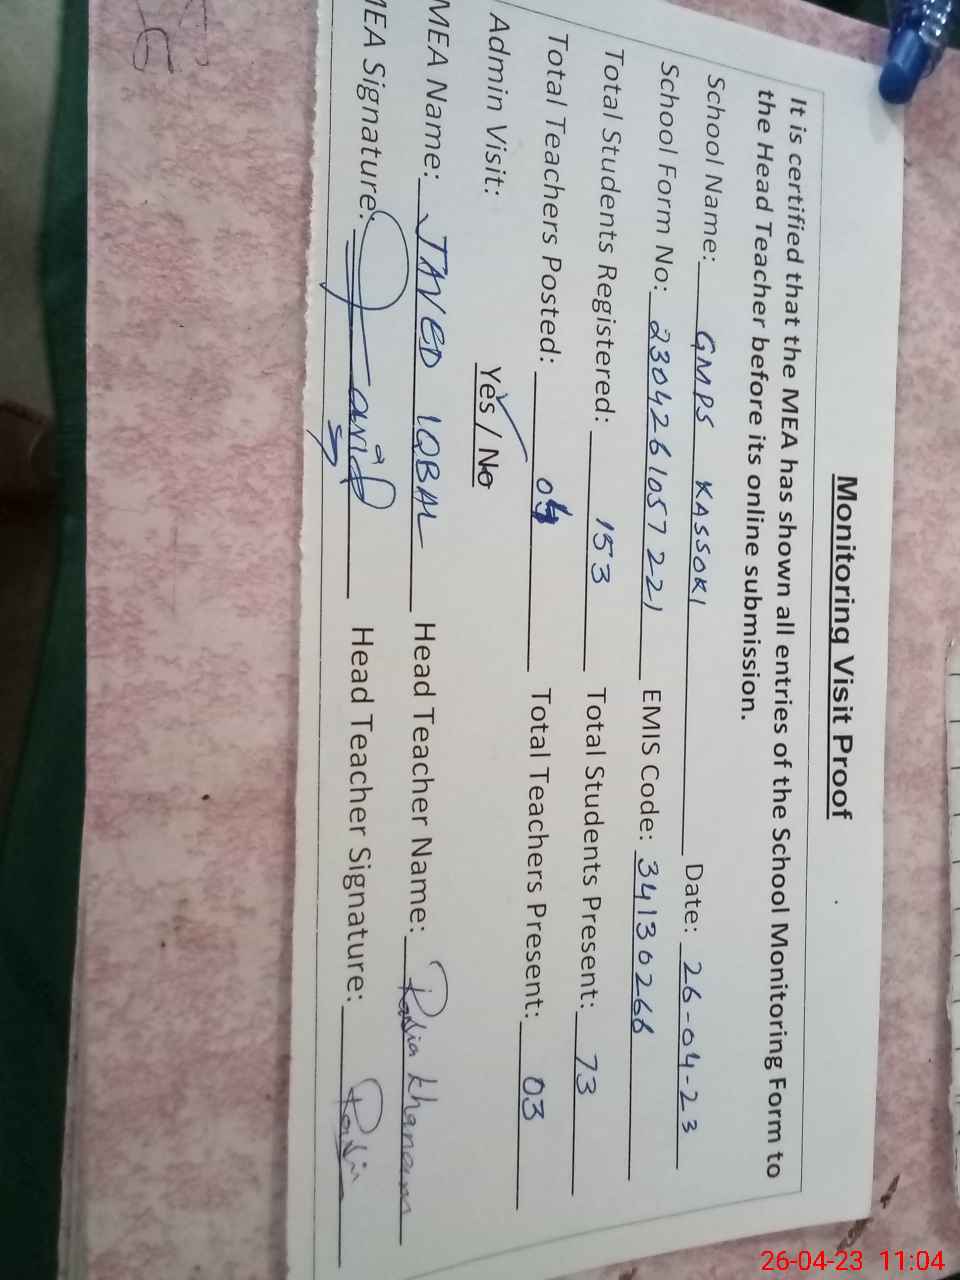 Monitoring Visit Proof
It is certified that the MEA has shown all entries of the School Monitoring Form to
the Head Teacher before its online submission.
School Name: GMPS KASSOKI Date: 26-04-23
School Form No: 2304261057221 EMIS Code: 34130266
Total Students Registered: 153 Total Students Present: 73
Total Teachers Posted: 04 Total Teachers Present: 03
Admin Visit: Yes / No
MEA Name: JAVED IQBAL Head Teacher Name: Razia Khanam
MEA Signature: Javid Head Teacher Signature: Razia
26-04-23 11:04